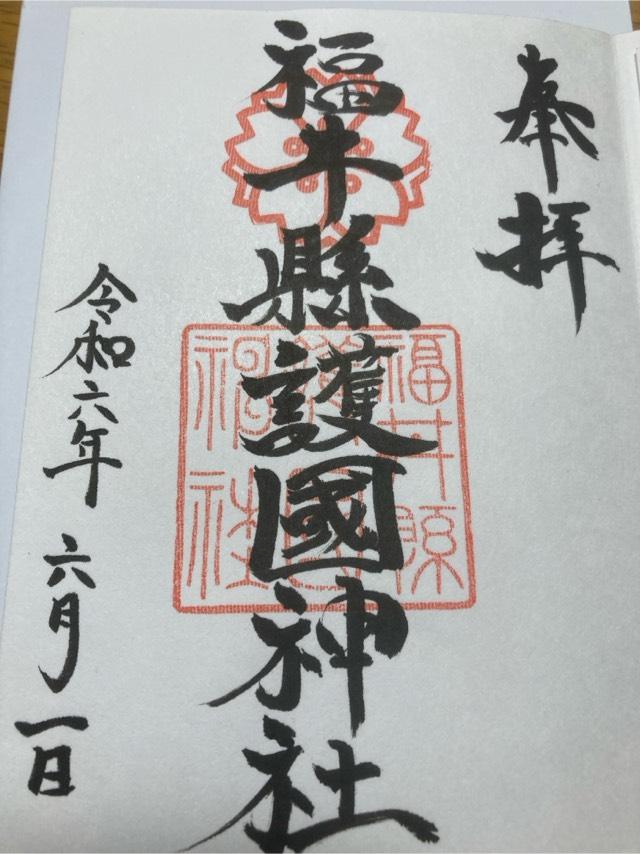 奉拝
福井縣護國神社
福井縣護國神社
令和六年 六月一日